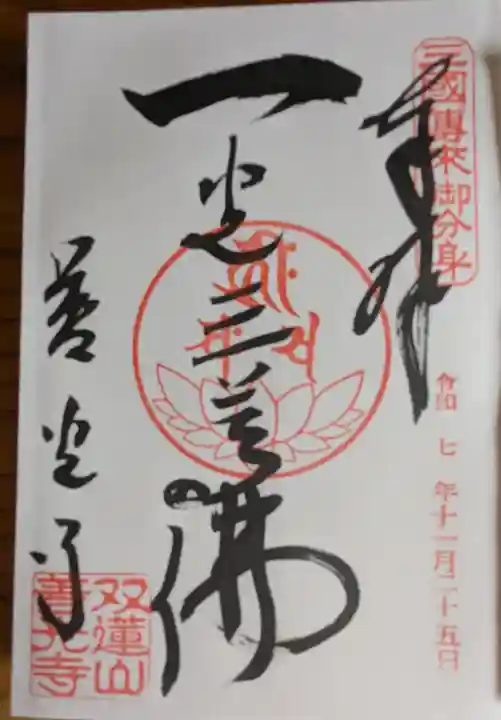 三國傳来御分身
奉拝
令和 七 年十一月二十五日
一光三尊佛
善光寺
双蓮山
善光寺